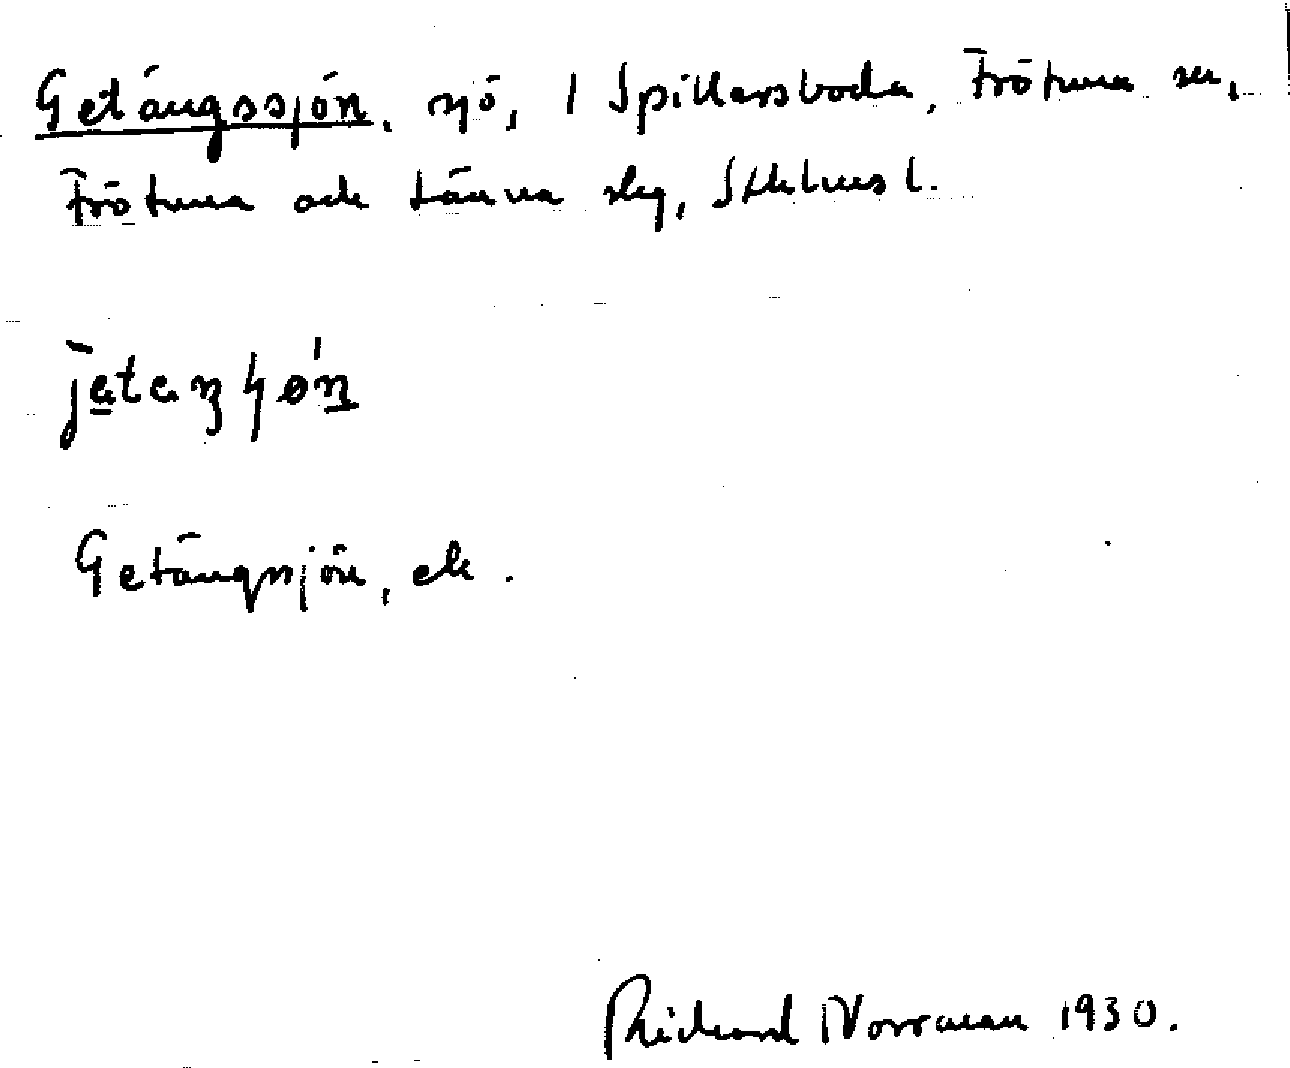 Getängssjön, sjö, i Spillersboda, Frötuna sn,
Frötuna och Länna slg, Sthlms l.
Getängssjön, ek.
Richard Norrman 1930.